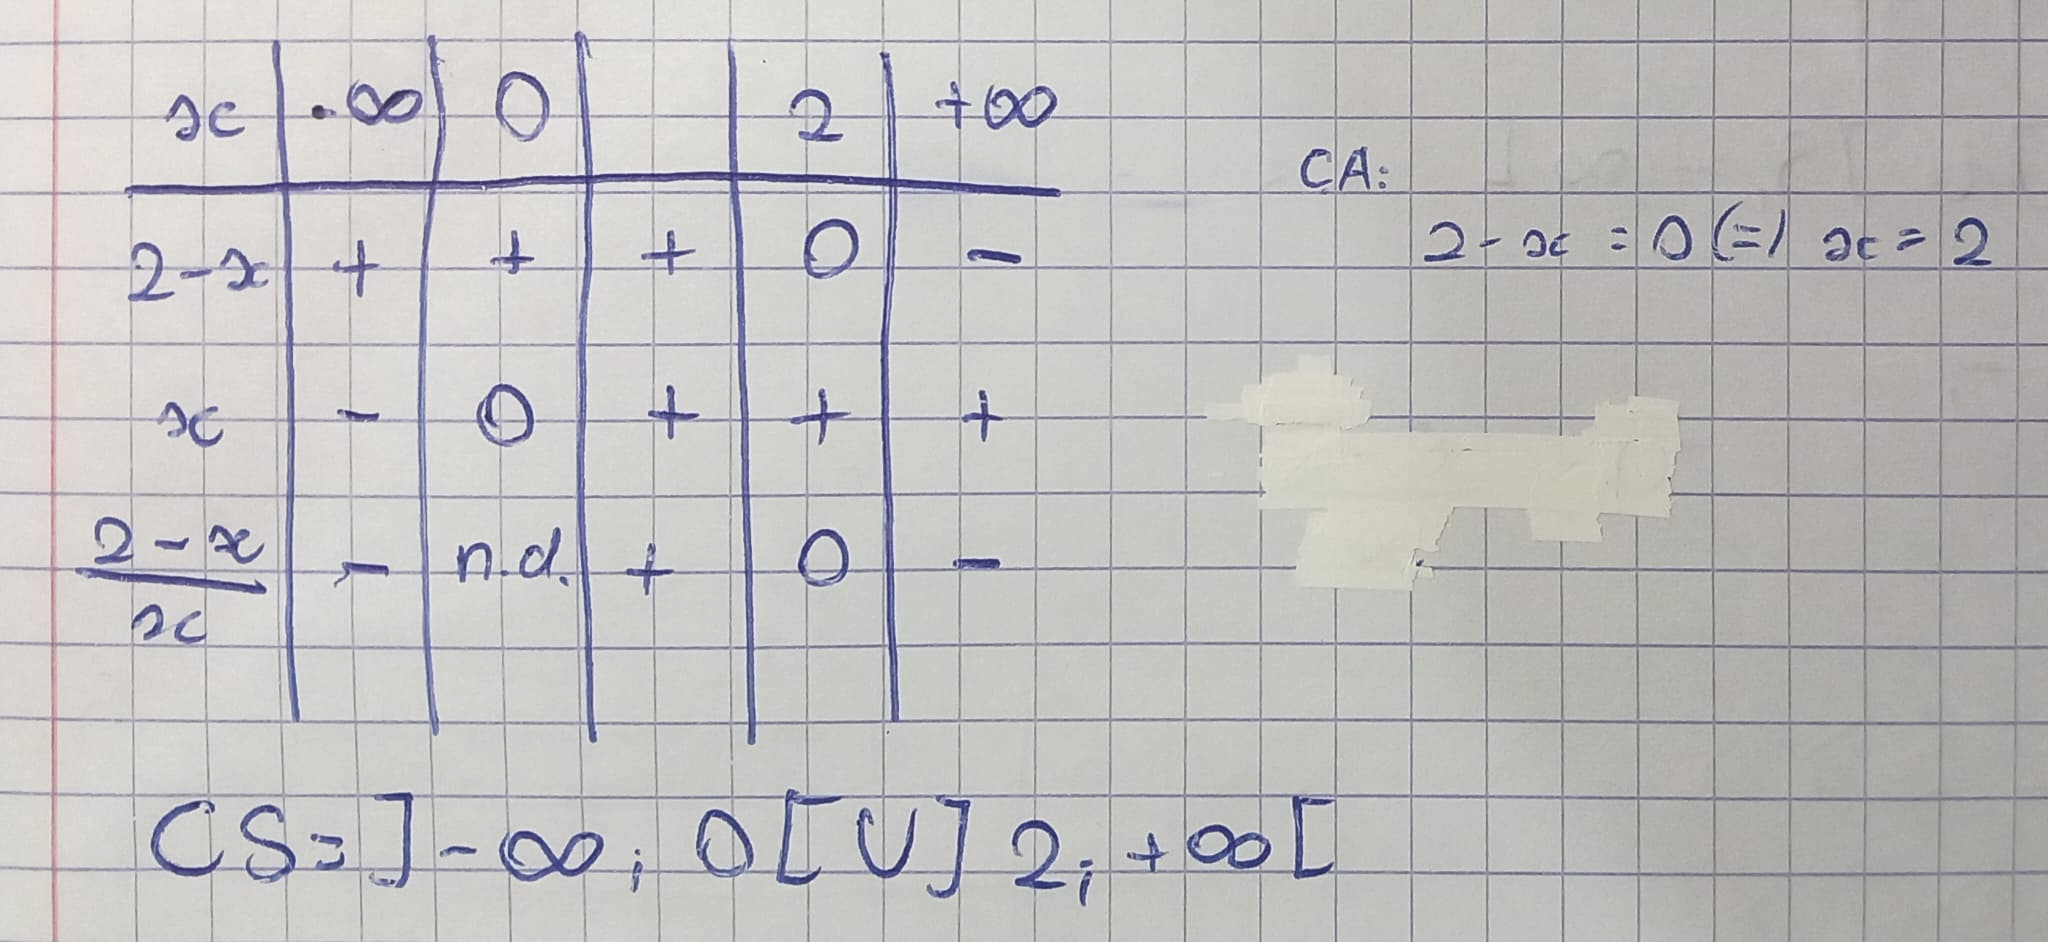 x | -∞ | 0 | | 2 | +∞
2-x | + | + | + | 0 | -
x | - | 0 | + | + | +
2-x
x | - | n.d. | + | 0 | -
CA:
2-x = 0 (=) x = 2
CS = ]-∞; 0[ U ] 2; +∞ [